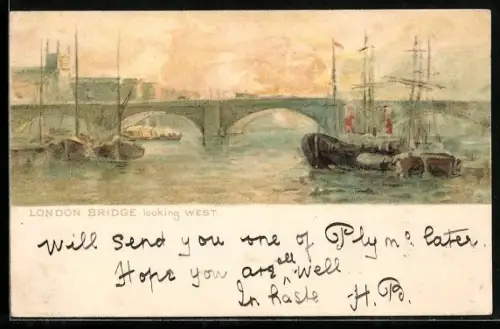 LONDON BRIDGE looking WEST.
Will send you one of Plymo. later.
Hope you are all well.
In haste H.B.